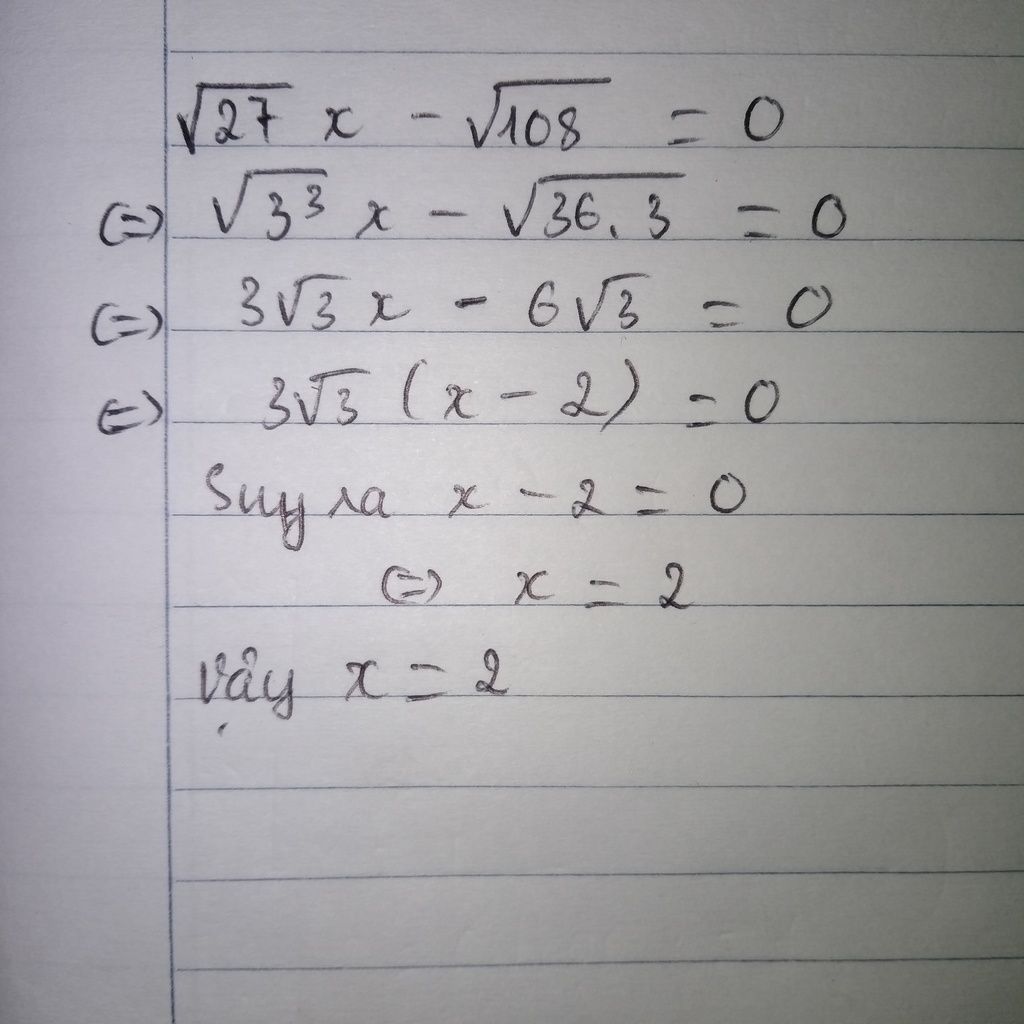 √27 x - √108 = 0
(=) √3³ x - √36.3 = 0
(=) 3√3 x - 6√3 = 0
(=) 3√3 (x - 2) = 0
Suy ra x - 2 = 0
(=) x = 2
Vậy x = 2